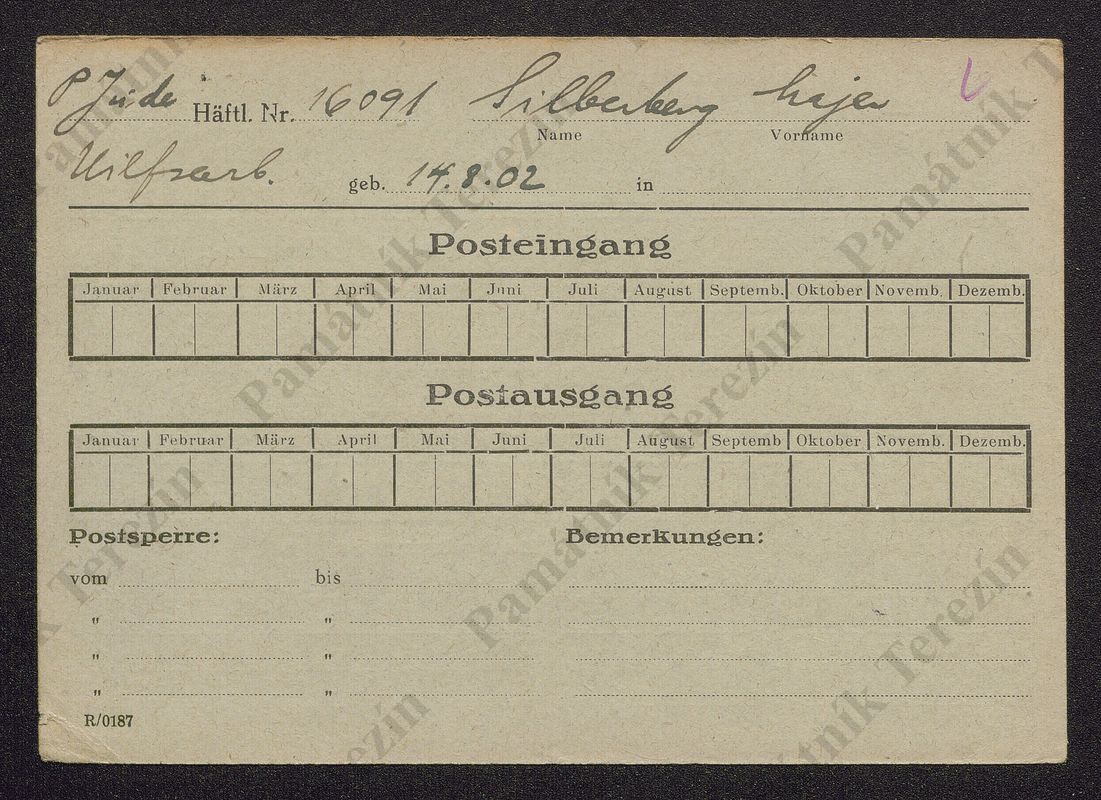 P Jude Häftl. Nr. 16091 Silberberg Majer
Name Vorname
Hilfsarb. geb. 14.8.02 in
Posteingang
Januar Februar März April Mai Juni Juli August Septemb. Oktober Novemb. Dezemb.
Postausgang
Januar Februar März April Mai Juni Juli August Septemb Oktober Novemb. Dezemb.
Postsperre: Bemerkungen:
vom bis
" "
" "
" "
R/0187
Památník Terezín